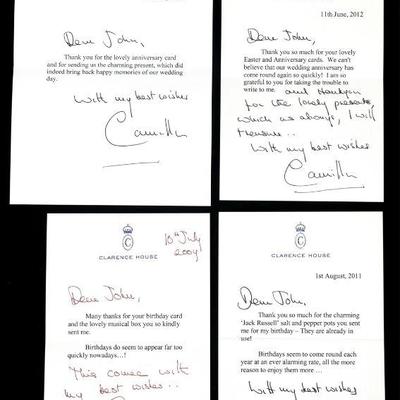 Dear John,
Thank you for the lovely anniversary card
and for sending us the charming present, which did
indeed bring back happy memories of our wedding
day.
With my best wishes
Camilla
11th June, 2012
Dear John,
Thank you so much for your lovely
Easter and Anniversary cards. We can't
believe that our wedding anniversary has
come round again so quickly! I am so
grateful to you for taking the trouble to
write to me. and thankyou
for the lovely presents,
which as always, I will
treasure..
With my best wishes
Camilla
CLARENCE HOUSE
10th July
2009
Dear John,
Many thanks for your birthday card
and the lovely musical box you so kindly
sent me.
Birthdays do seem to appear far too
quickly nowadays...!
This comes with
my best wishes..
CLARENCE HOUSE
1st August, 2011
Dear John,
Thank you so much for the charming
'Jack Russell' salt and pepper pots you sent
me for my birthday – They are already in
use!
Birthdays seem to come round each
year at an ever alarming rate, all the
more reason to enjoy them more ...
With my best wishes